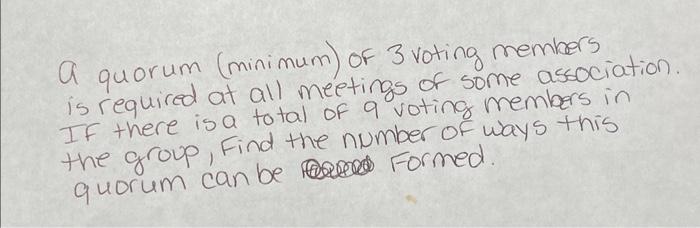 a quorum (minimum) of 3 voting members
is required at all meetings of some association.
If there is a total of 9 voting members in
the group, Find the number of ways this
quorum can be Formed.